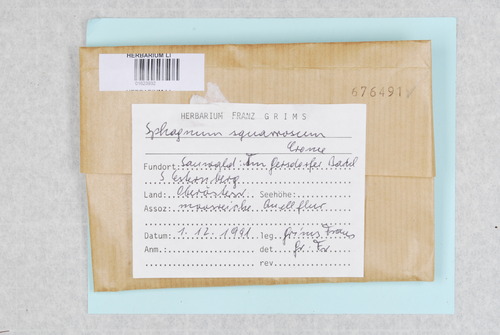 HERBARIUM LI
676491
HERBARIUM FRANZ GRIMS
Sphagnum squarrosum
Crome
Fundort: Sauwald: Im Gersdorfer Bachtl
S Esternberg
Land: Oberösterr. Seehöhe:
Assoz: moosreiche Quellflur
Datum: 1. 12. 1991 leg. Grims Franz
Anm.: det. Gr. Fr.
rev.